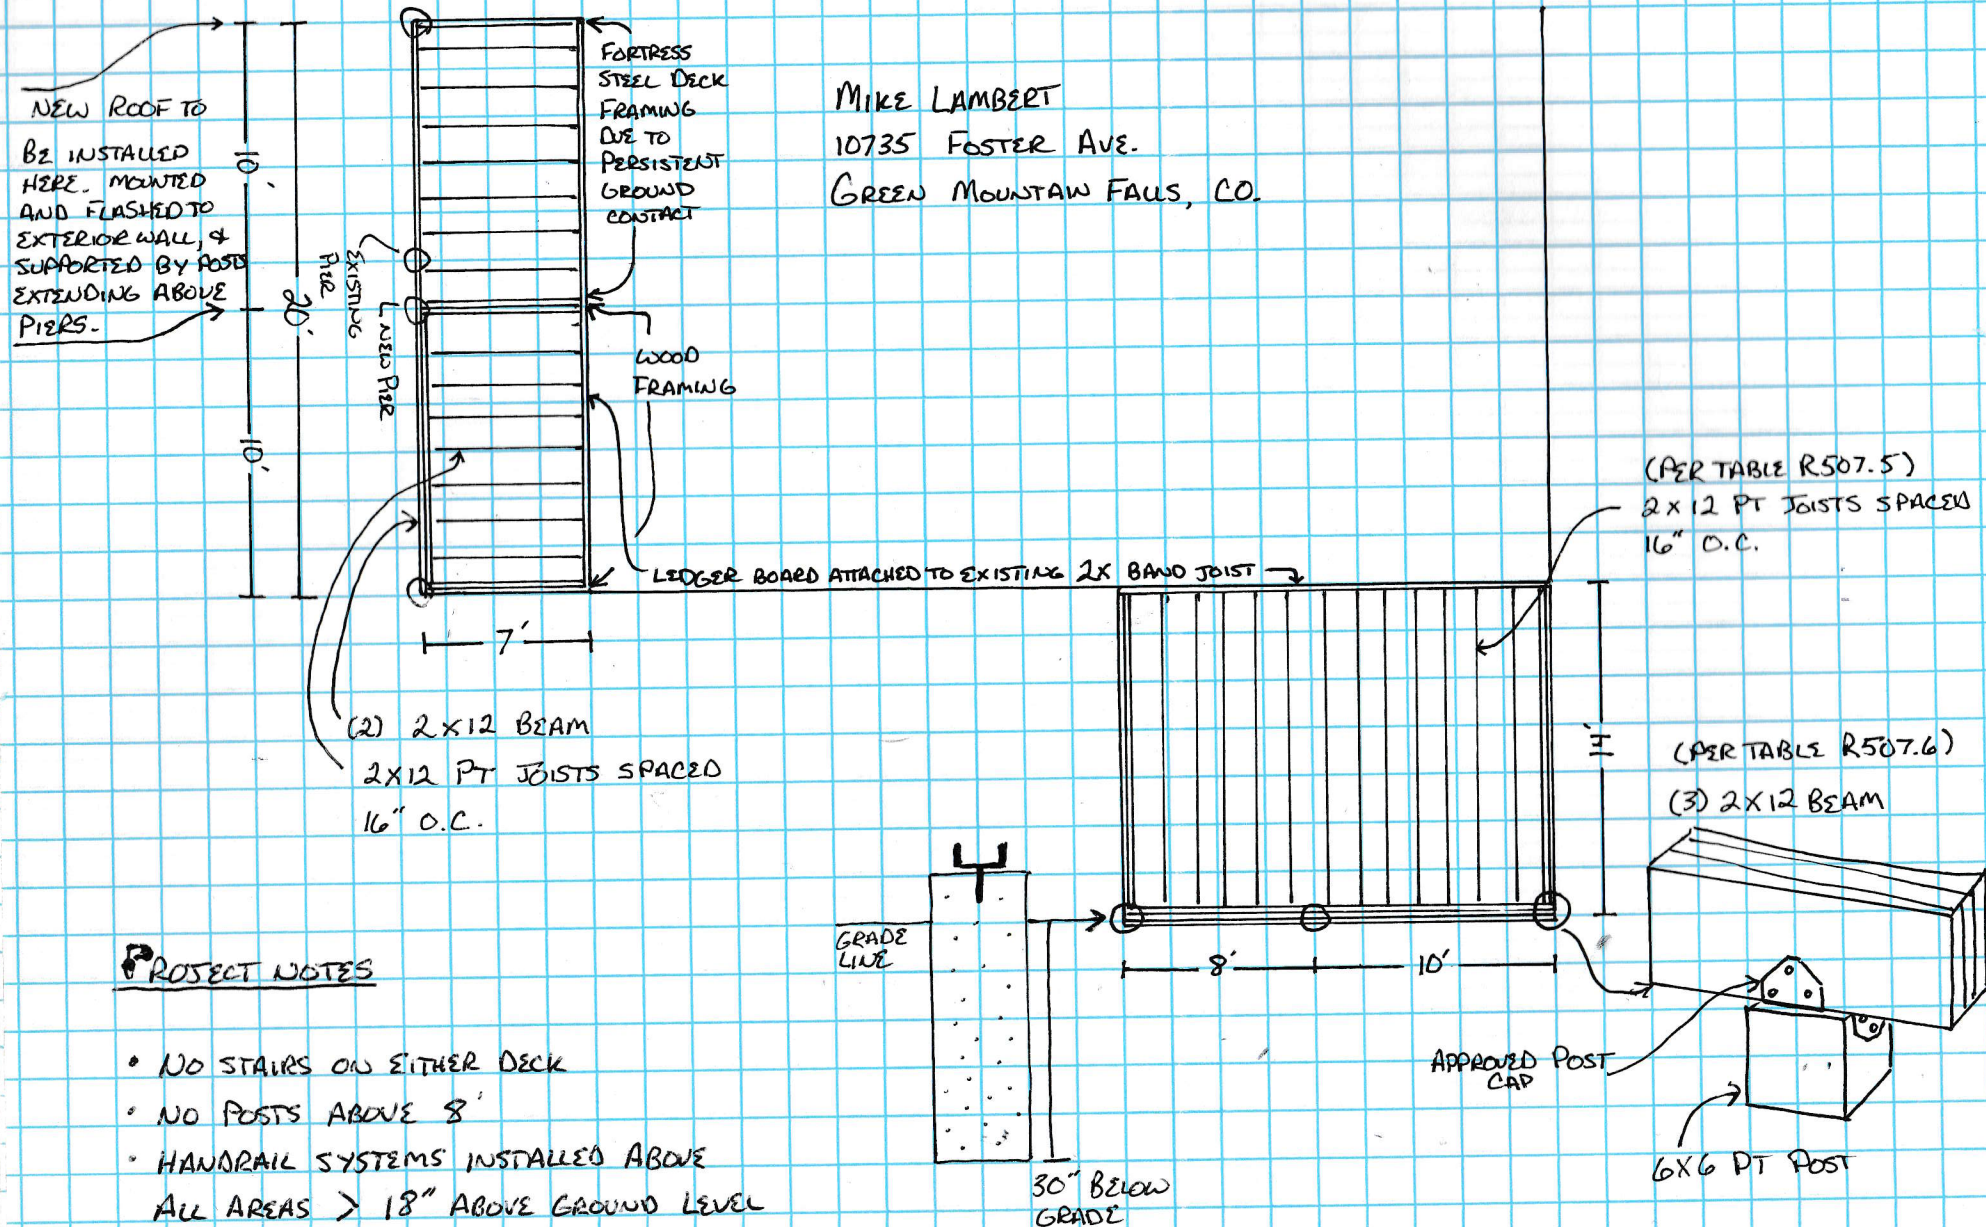 NEW ROOF TO
BE INSTALLED
HERE. MOUNTED
AND FLASHED TO
EXTERIOR WALL, &
SUPPORTED BY POSTS
EXTENDING ABOVE
PIERS.
10'
20'
10'
EXISTING
PIER
NEW PIER
FORTRESS
STEEL DECK
FRAMING
DUE TO
PERSISTENT
GROUND
CONTACT
WOOD
FRAMING
MIKE LAMBERT
10735 FOSTER AVE.
GREEN MOUNTAIN FALLS, CO.
(PER TABLE R507.5)
2X12 PT JOISTS SPACED
16" O.C.
LEDGER BOARD ATTACHED TO EXISTING 2X BAND JOIST
7'
(2) 2X12 BEAM
2X12 PT JOISTS SPACED
16" O.C.
(PER TABLE R507.6)
(3) 2X12 BEAM
GRADE
LINE
8'
10'
APPROVED POST
CAP
6X6 PT POST
30" BELOW
GRADE
PROJECT NOTES
• NO STAIRS ON EITHER DECK
• NO POSTS ABOVE 8'
• HANDRAIL SYSTEMS INSTALLED ABOVE
ALL AREAS > 18" ABOVE GROUND LEVEL